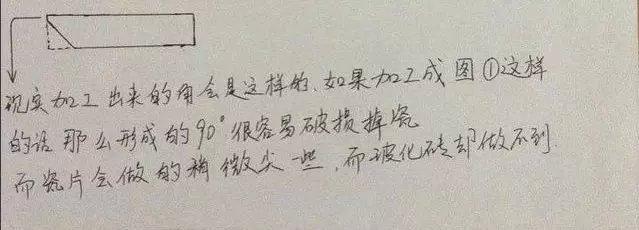 现实加工出来的角会是这样的、如果加工成图①这样
的话那么形成的90°很容易破损掉瓷
而瓷片会做的稍微尖一些，而玻化砖却做不到.